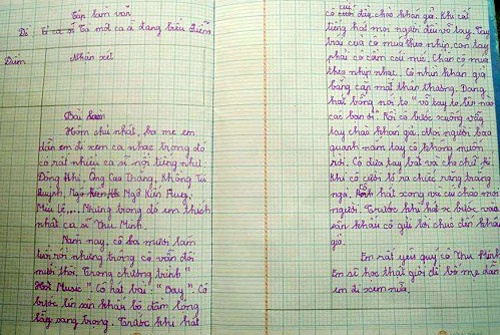 Tập làm văn
Đề Tả ca sĩ Tả một ca sĩ đang biểu diễn
Điểm Nhận xét
Bài làm
Hôm chủ nhật, ba mẹ em
dẫn em đi xem ca nhạc trong đó
có rất nhiều ca sĩ nổi tiếng như
Đông Nhi, Ông Cao Thắng, Khổng Tú
Quỳnh, Ngô Kiến Huy,
Miu Lê,... Nhưng trong đó em thích
nhất ca sĩ Thu Minh.
Năm nay, cô ba mươi lăm
tuổi rồi nhưng trông cô vẫn đôi
mươi thôi. Trong chương trình "
Hot Music". Cô hát bài "Bay". Cô
bước lên sân khấu bộ đầm lóng
lấy sang trọng. Trước khi hát
cô cúi đây chào khán giả. Khi cất
tiếng hát mọi người đều vỗ tay. Tay
trái của cô múa theo nhịp còn tay
phải cô cầm cái mic. Chân cô múa
theo nhịp nhạc. Cô nhìn khán giả
bằng cặp mắt thân thương. Đang
hát bỗng nói to "vỗ tay to lên nào
các bạn ơi". Rồi cô bước xuống vẫy
tay chào khán giả. Mọi người bao
quanh nắm tay cô không muốn
rời. Cô đưa tay bắt và cho chữ kí.
Khi cô cười lộ ra chiếc răng trắng
ngà. Cô hát xong rồi cúi chào mọi
người. Trước khi hát cô bước vào
sân khấu cô gửi lời chúc đến khán
giả.
Em rất yêu quý cô Thu Minh.
Em sẽ học thật giỏi để bố mẹ dẫn
em đi xem nữa.